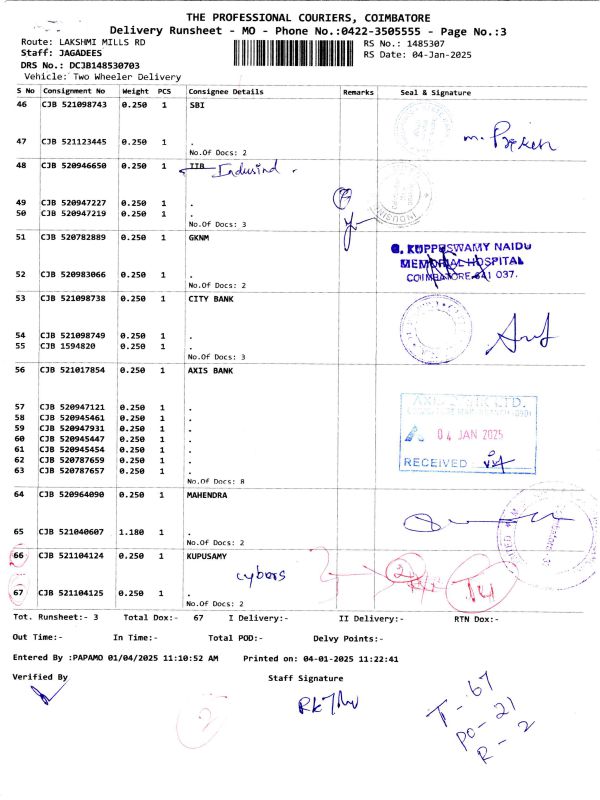 THE PROFESSIONAL COURIERS, COIMBATORE
Delivery Runsheet - MO - Phone No.:0422-3505555 - Page No.:3
Route: LAKSHMI MILLS RD
RS No.: 1485307
Staff: JAGADEES
RS Date: 04-Jan-2025
DRS No.: DCJB148530703
Vehicle: Two Wheeler Delivery
S No Consignment No Weight PCS Consignee Details Remarks Seal & Signature
46 CJB 521098743 0.250 1 SBI
47 CJB 521123445 0.250 1 .
No.Of Docs: 2
48 CJB 520946650 0.250 1 IIB Indusind
49 CJB 520947227 0.250 1 .
50 CJB 520947219 0.250 1 .
No.Of Docs: 3
51 CJB 520782889 0.250 1 GKNM
G. KUPPUSWAMY NAIDU
MEMORIAL HOSPITAL
COIMBATORE-641 037.
52 CJB 520983066 0.250 1 .
No.Of Docs: 2
53 CJB 521098738 0.250 1 CITY BANK
54 CJB 521098749 0.250 1 .
55 CJB 1594820 0.250 1 .
No.Of Docs: 3
56 CJB 521017854 0.250 1 AXIS BANK
57 CJB 520947121 0.250 1 .
58 CJB 520945461 0.250 1 .
59 CJB 520947931 0.250 1 .
60 CJB 520945447 0.250 1 .
61 CJB 520945454 0.250 1 .
62 CJB 520787659 0.250 1 .
63 CJB 520787657 0.250 1 .
04 JAN 2025
RECEIVED
No.Of Docs: 8
64 CJB 520964090 0.250 1 MAHENDRA
65 CJB 521040607 1.180 1 .
No.Of Docs: 2
66 CJB 521104124 0.250 1 KUPUSAMY
cybors
2
67 CJB 521104125 0.250 1 .
No.Of Docs: 2
Tot. Runsheet:- 3 Total Dox:- 67 I Delivery:- II Delivery:- RTN Dox:-
Out Time:- In Time:- Total POD:- Delvy Points:-
Entered By :PAPAMO 01/04/2025 11:10:52 AM Printed on: 04-01-2025 11:22:41
Verified By Staff Signature
T - 67
PO - 21
R - 2
2